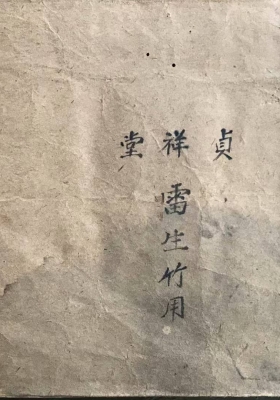 貞祥堂
雷生竹用